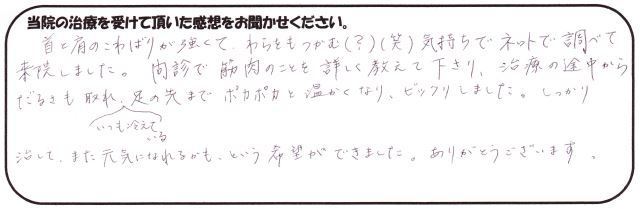 当院の治療を受けて頂いた感想をお聞かせください。
首と肩のこわばりが強くて、わらをもつかむ(?)(笑)気持ちでネットで調べて
来院しました。問診で筋肉のことを詳しく教えて下さり、治療の途中から
だるさも取れ、足の先までポカポカと温かくなり、ビックリしました。しっかり
いつも冷えて
いる
治して、また元気になれるかも、という希望ができました。ありがとうございます。